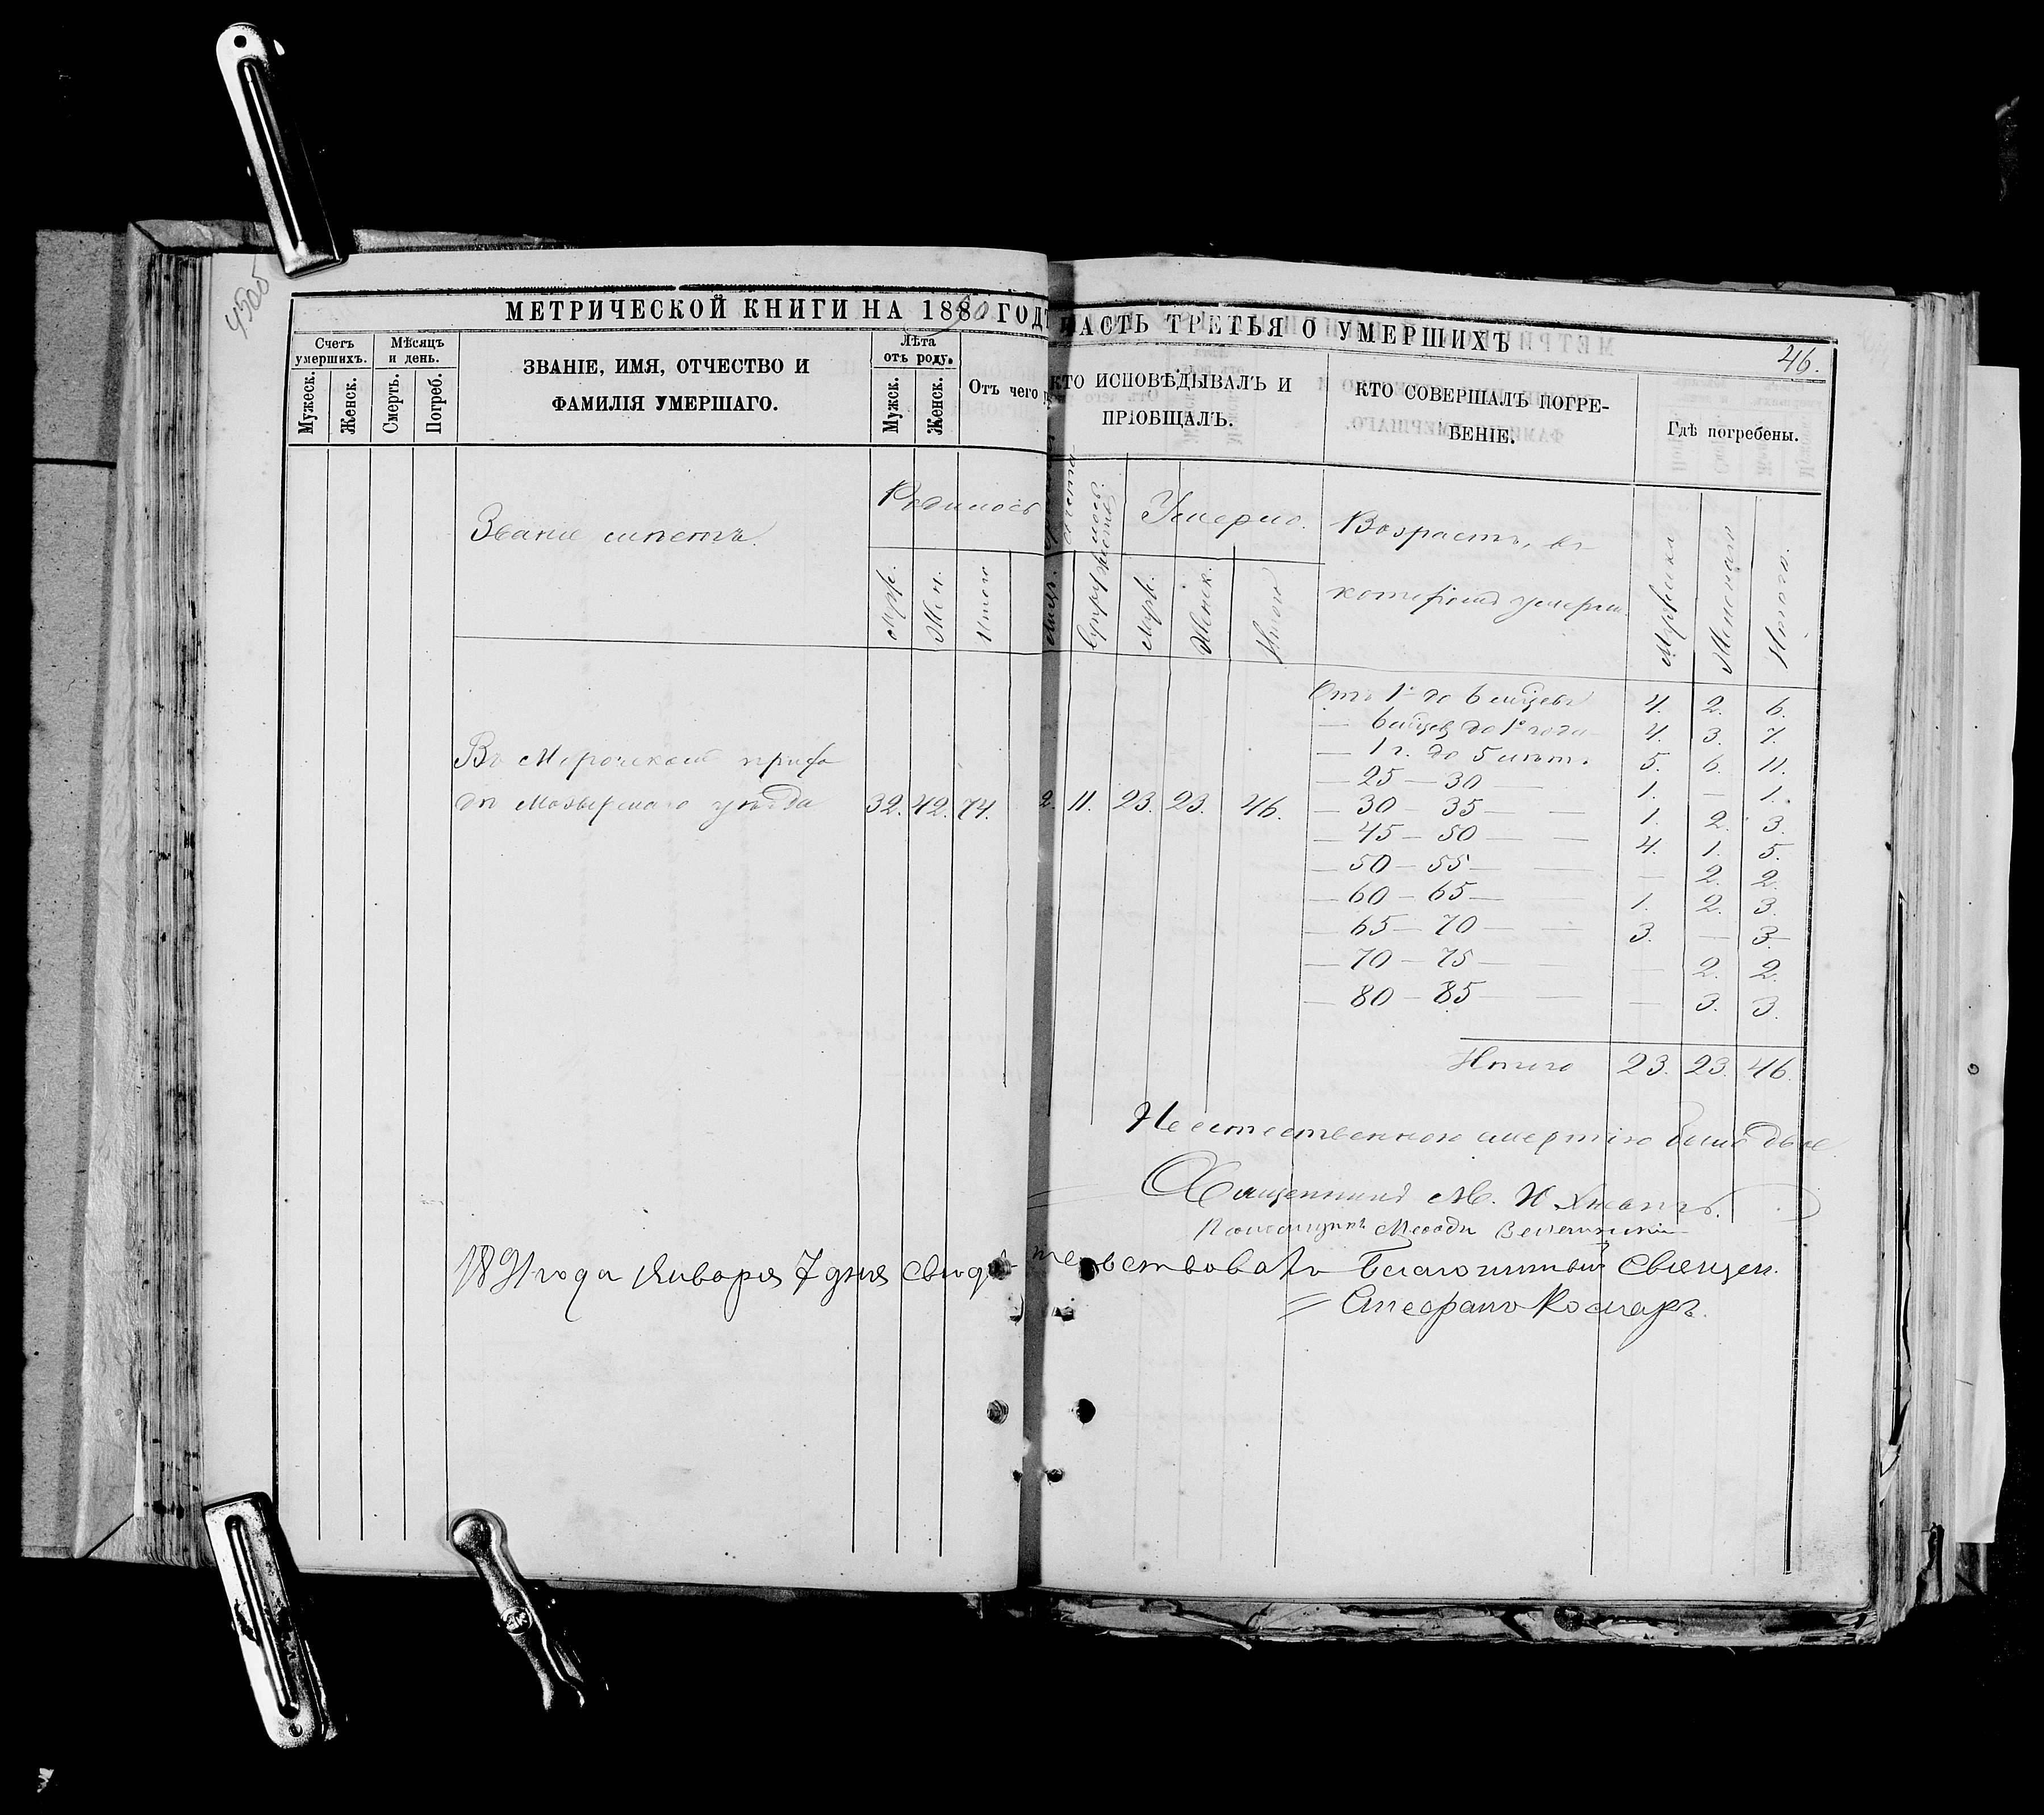 4506
МЕТРИЧЕСКОЙ КНИГИ НА 1890 ГОДЪ
ЧАСТЬ ТРЕТЬЯ О УМЕРШИХЪ
46.
Счетъ умершихъ.
Мужеск.
Женск.
Мѣсяцъ и день.
Смерть.
Погреб.
ЗВАНІЕ, ИМЯ, ОТЧЕСТВО И
ФАМИЛІЯ УМЕРШАГО.
Лѣта отъ роду.
Мужск.
Женск.
Отъ чего
КТО ИСПОВѢДЫВАЛЪ И
ПРІОБЩАЛЪ.
КТО СОВЕРШАЛЪ ПОГРЕ-
БЕНІЕ.
Гдѣ погребены.
Званіе мѣстъ.
Родилось
Муж.
Жен.
Итого
Умерло.
Муж.
Женск.
Итого
Возрастъ, въ
которомъ умерли.
Мужеска
Женскаго
Итого.
Въ Морочскомъ прихо
дѣ Мозырскаго уѣзда
32. 42. 74. 2. 11. 23. 23. 46.
Отъ 1 до 6 мѣсцевъ 4. 2. 6.
— 6 мѣсцев до 1 года 4. 3. 7.
— 1 г. до 5 лѣтъ. 5. 6. 11.
— 25 — 30 — 1. — 1.
— 30 — 35 — — 1. 2. 3.
— 45 — 50 — — 4. 1. 5.
— 50 — 55 — — — 2. 2.
— 60 — 65 — — 1. 2. 3.
— 65 — 70 — — 3. — 3.
— 70 — 75 — — — 2. 2.
— 80 — 85 — — — 3. 3.
Итого 23. 23. 46.
Неестественною смертію было двое
Священникъ М.
Псаломщикъ
1891 года Января 7 дня свидѣтельствовалъ Благочинный Священ.
Стефанъ Комаръ.